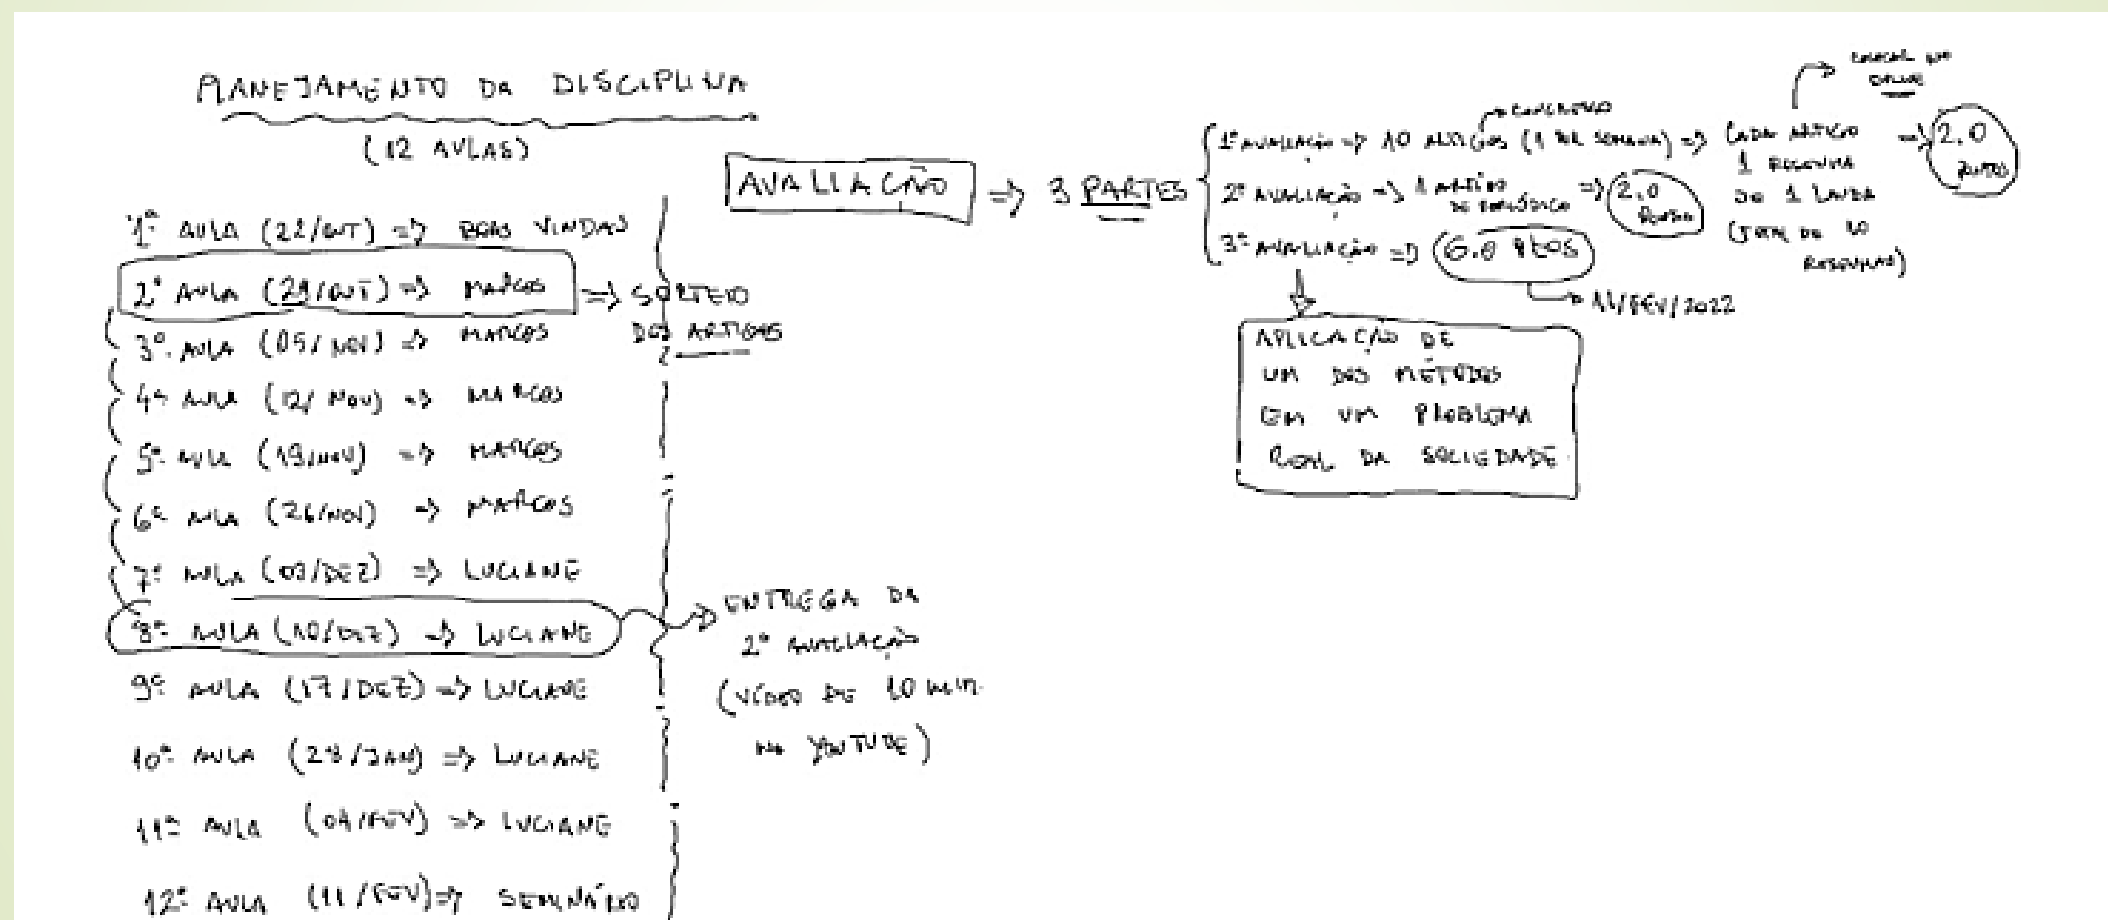 PLANEJAMENTO DA DISCIPLINA
(12 AULAS)
1ª AULA (22/OUT) => BOAS VINDAS
2ª AULA (29/OUT) => MARCOS => SORTEIO
DOS ARTIGOS
3ª AULA (05/NOV) => MARCOS
4ª AULA (12/NOV) => MARCOS
5ª AULA (19/NOV) => MARCOS
6ª AULA (26/NOV) => MARCOS
7ª AULA (03/DEZ) => LUCIANE
8ª AULA (10/DEZ) => LUCIANE
ENTREGA DA
2ª AVALIAÇÃO
(VÍDEO DE 10 MIN.
NO YOUTUBE)
9ª AULA (17/DEZ) => LUCIANE
10ª AULA (28/JAN) => LUCIANE
11ª AULA (04/FEV) => LUCIANE
12ª AULA (11/FEV) => SEMINÁRIO
AVALIAÇÃO => 3 PARTES
1ª AVALIAÇÃO => 10 ARTIGOS (1 POR SEMANA) =>
CONGRESSO
CADA ARTIGO
1 RESENHA
DE 1 LAUDA
(TOTAL DE 10
RESENHAS)
COLOCAR NO
DRIVE
=> 2.0
PONTOS
2ª AVALIAÇÃO => 1 ARTIGO
DE PERIÓDICO
=> 2.0
PONTOS
3ª AVALIAÇÃO => 6.0 PTOS
11/FEV/2022
APLICAÇÃO DE
UM DOS MÉTODOS
EM UM PROBLEMA
REAL DA SOCIEDADE